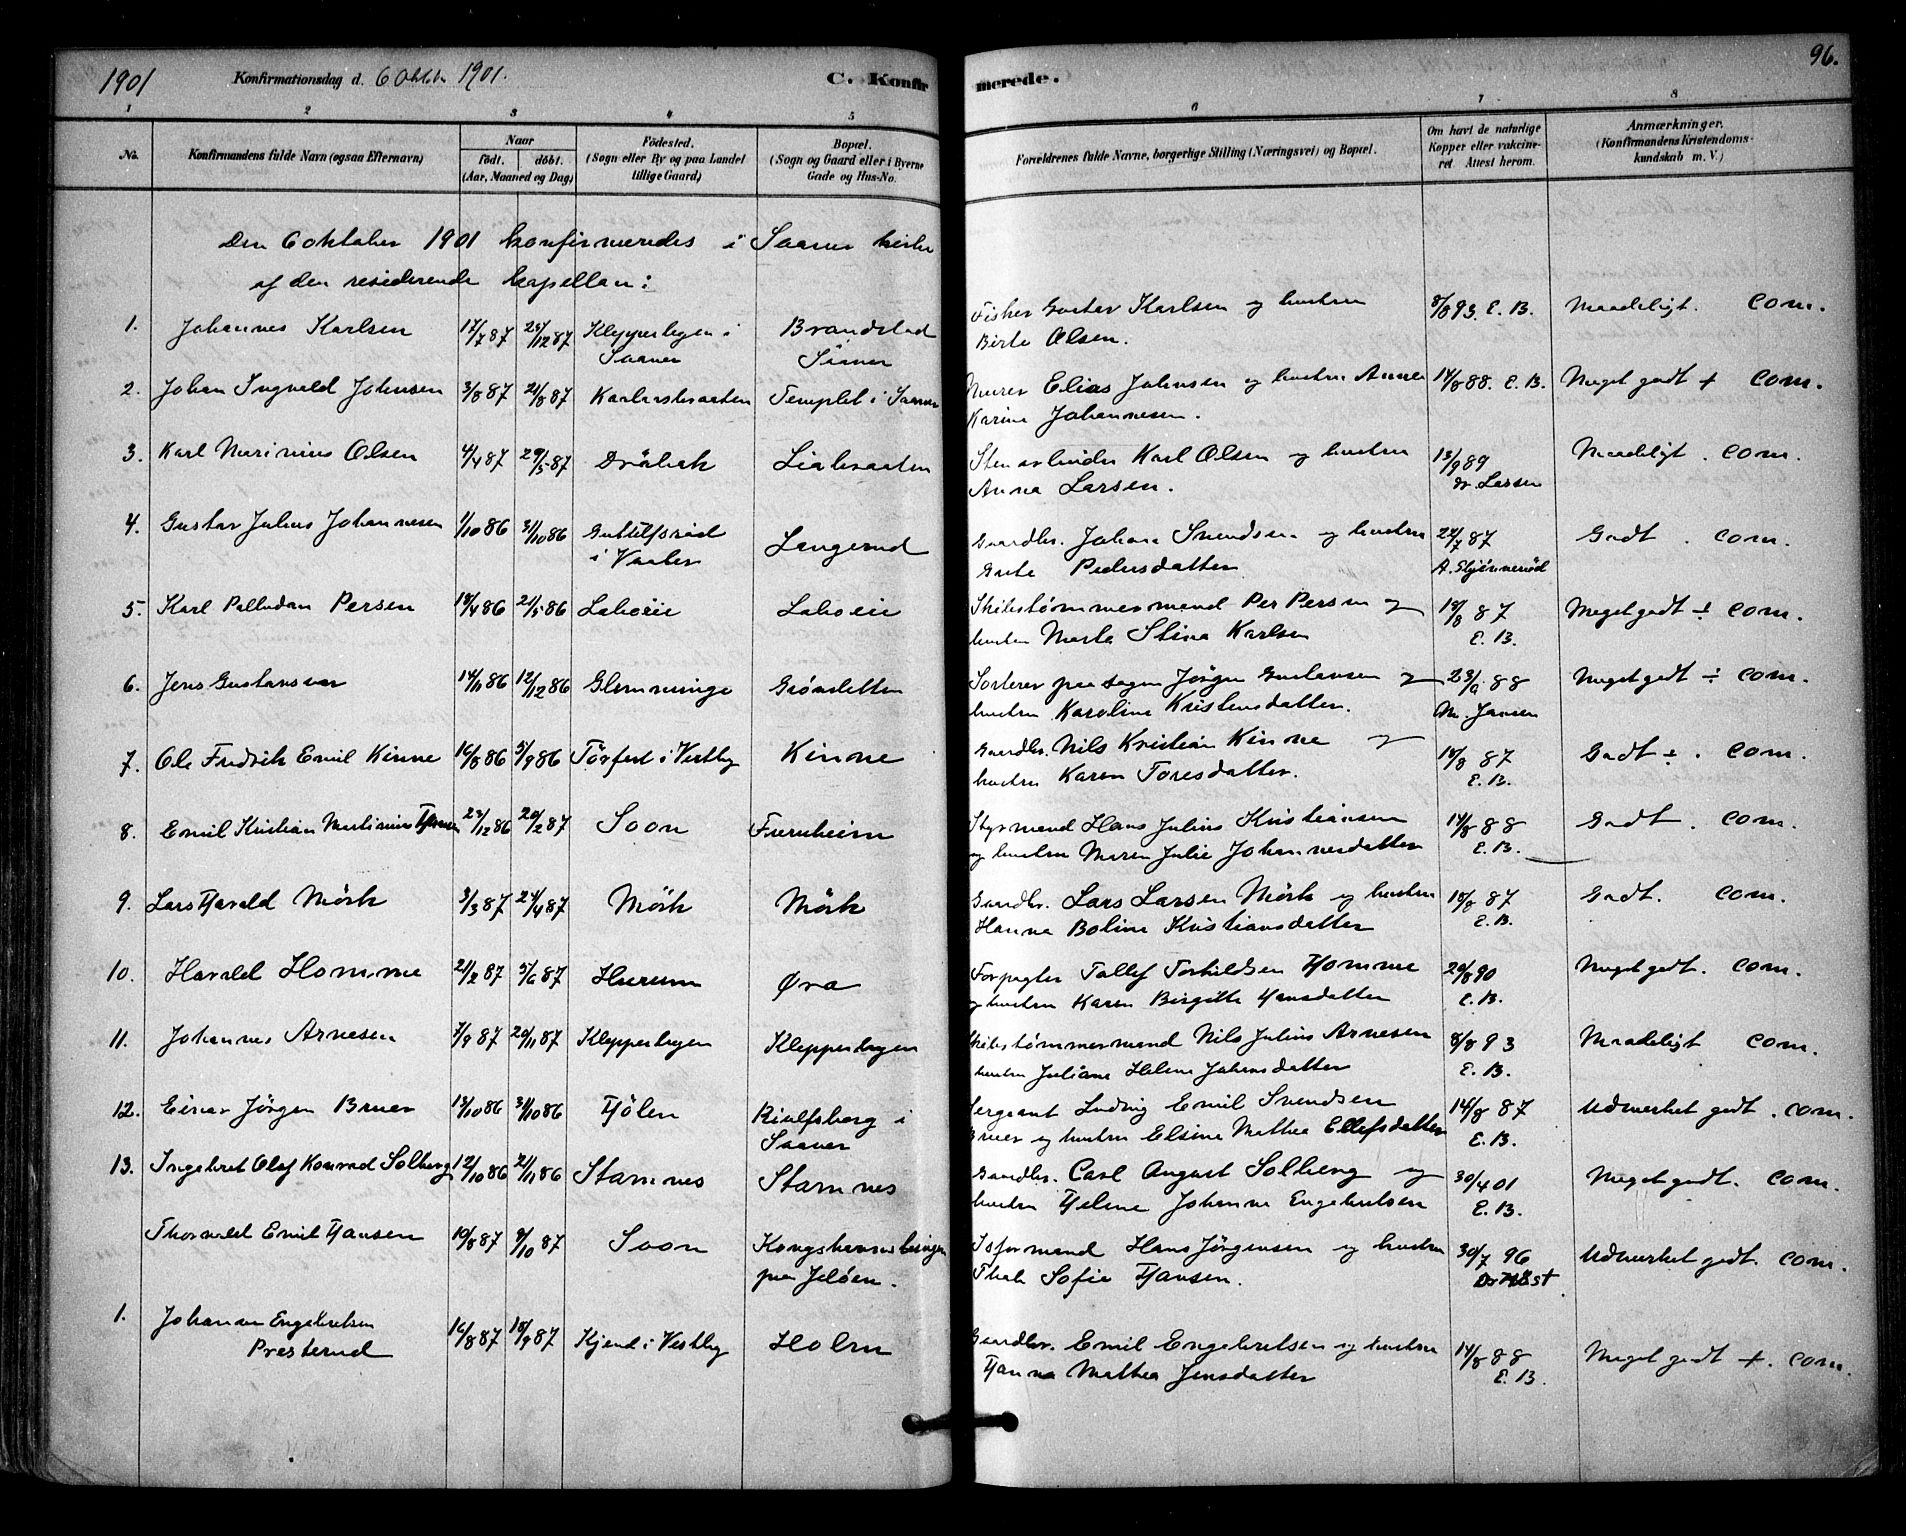 1901 Konfirmationsdag d. 6 Oktob. 1901. C. Konfir merede. 96.
1 2 3 4 5 6 7 8
No. Konfirmandens fulde Navn (ogsaa Efternavn) Naar födt. döbt. (Aar, Maaned og Dag) Födested. (Sogn eller By og paa Landet tillige Gaard) Bopæl. (Sogn og Gaard eller i Byerne Gade og Hus-No. Forældrenes fulde Navne, borgerlige Stilling (Næringsvei) og Bopæl. Om havt de naturlige Kopper eller vakcineret Attest herom. Anmærkninger. (Konfirmandens Kristendomskundskab m. V.)
Den 6 oktober 1901 konfirmeredes i Saaner kirke
af den residerende kapellan:
1. Johannes Karlsen 17/7 87 25/12 87 Klepperhagen i Brandstad Fisker Gustav Karlsen og hustru 8/8 93. E. B. Maadeligt. Com.
Saaner Saaner Birte Olsen.
2. Johan Ingvald Johnsen 3/8 87 21/8 87 Templet i Saaner Murer Elias Johnsen og hustru Anne 14/8 88. E. B. Meget godt + Com.
Karine Johannesen.
3. Karl Marinius Olsen 4/4 87 29/5 87 Dröbak Liabraaten Stenarbeider Karl Olsen og hustru 13/9 89 Maadeligt. Com.
Anna Larsen. Dr. Lassen
4. Gustav Julius Johannesen 1/10 86 31/10 86 Langerud Gaardbr. Johan Svendsen og hustru 22/7 87 Godt. Com.
i Vaaler Grete Pedersdatter
5. Karl Palludan Persen 18/4 86 21/5 86 Laboeie Laboeie Skibstømmermand Per Persen og 18/8 87 Meget godt ÷ Com.
hustru Marta Stina Karlsen E. B.
6. Jens Gustavsen 14/11 86 12/12 86 Glemminge Grönsletten Sorterer paa sagen Jörgen Gustavsen og 23/9 88 Meget godt ÷ Com.
hustru Karoline Kristensdatter. M. Jansen
7. Ole Fredrik Emil Kinne 16/8 86 5/9 86 Törfest i Vestby Kinne Gaardbr. Nils Kristian Kinne og 18/8 87 Godt ÷. Com.
hustru Karen Toresdatter. E. B.
8. Emil Kristian Martinius Hansen 23/12 86 20/2 87 Soon Furuheim Styrmand Hans Julius Kristiansen 14/8 88 Godt. Com.
og hustru Maren Julie Johannesdatter E. B.
9. Lars Harald Mörk 3/3 87 24/4 87 Mörk Mörk Gaardbr. Lars Larsen Mörk og hustru 18/8 87 Godt. Com.
Hanna Boline Kristiansdatter E. B.
10. Harald Homme 21/2 87 5/6 87 Hurum Øra Forpagter Tallef Torkildsen Homme 20/8 90 Meget godt. Com.
og hustru Karen Birgitte Hansdatter E. B.
11. Johannes Arnesen 7/9 87 20/11 87 Klepperhagen Klepperhagen Skibstømmermand Nils Julius Arnesen 8/8 93 Maadeligt Com.
hustru Juliane Helene Johansdatter E. B.
12. Einar Jörgen Bruer 13/10 86 31/10 86 Hölen Kjölfsberg i Sergeant Ludvig Emil Svendsen 14/8 87 Udmerket godt. Com.
Saaner Bruer og hustru Elsine Mathea Ellefsdatter E. B.
13. Ingebret Olaf Konrad Solberg 12/10 86 21/11 86 Stamnes Stamnes Gaardbr. Carl August Solberg og 30/4 01 Meget godt. Com.
hustru Helene Johanne Engebretsen E. B.
Thorvald Emil Hansen 19/8 87 9/10 87 Soon Kongshavnsbringen Isformand Hans Jörgensen og hustru 30/7 96 Udmerket godt. Com.
paa Jelöen. Sofie Hansen. Dr Höst
1. Johannes Engebretsen
Presterud 16/8 87 18/9 87 Kjend i Vestby Holm Gaardbr. Emil Engebretsen og hustru 14/8 88 Meget godt +. Com.
Hanna Mathea Jensdatter E. B.